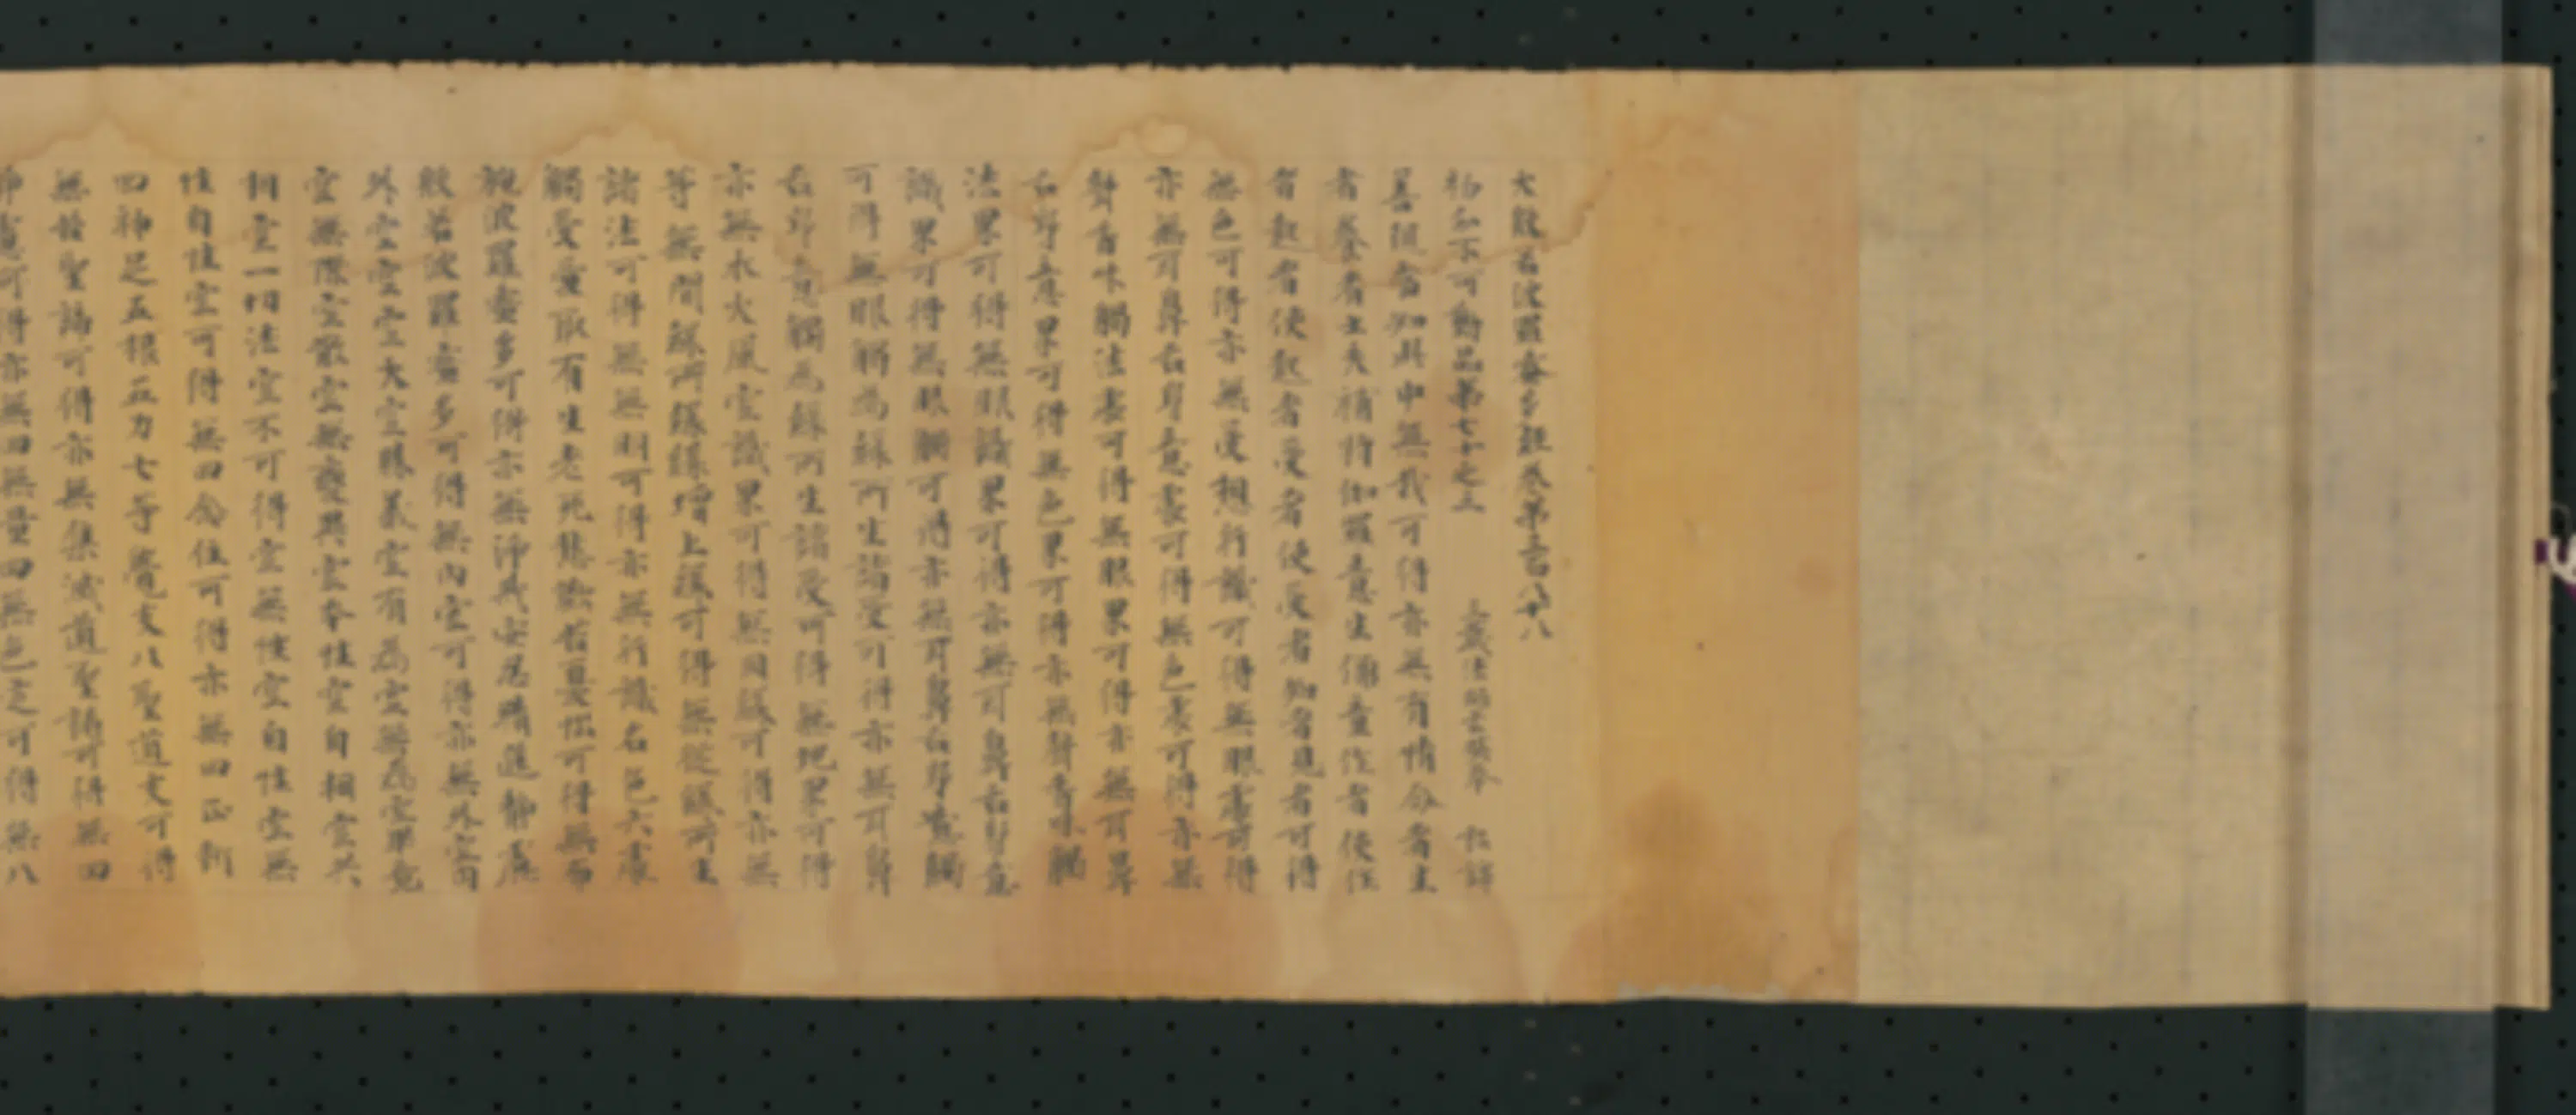 大般若波羅蜜多經卷第三百八十八
初分不可動品第七十之三 三藏法師玄奘奉 詔譯
善現當知其中無我可得亦無有情命者生
者養者士夫補特伽羅意生儒童作者使作
者起者使起者受者使受者知者見者可得
無色可得亦無受想行識可得無眼處可得
亦無耳鼻舌身意處可得無色處可得亦無
聲香味觸法處可得無眼界可得亦無耳鼻
舌身意界可得無色界可得亦無聲香味觸
法界可得無眼識界可得亦無耳鼻舌身意
識界可得無眼觸可得亦無耳鼻舌身意觸
可得無眼觸為緣所生諸受可得亦無耳鼻
舌身意觸為緣所生諸受可得無地界可得
亦無水火風空識界可得無因緣可得亦無
等無間緣所緣緣增上緣可得無從緣所生
諸法可得無無明可得亦無行識名色六處
觸受愛取有生老死愁歎苦憂惱可得無布
施波羅蜜多可得亦無淨戒安忍精進靜慮
般若波羅蜜多可得無內空可得亦無外空內
外空空空大空勝義空有為空無為空畢竟
空無際空散空無變異空本性空自相空共
相空一切法空不可得空無性空自性空無
性自性空可得無四念住可得亦無四正斷
四神足五根五力七等覺支八聖道支可得
無苦聖諦可得亦無集滅道聖諦可得無四
靜慮可得亦無四無量四無色定可得無八